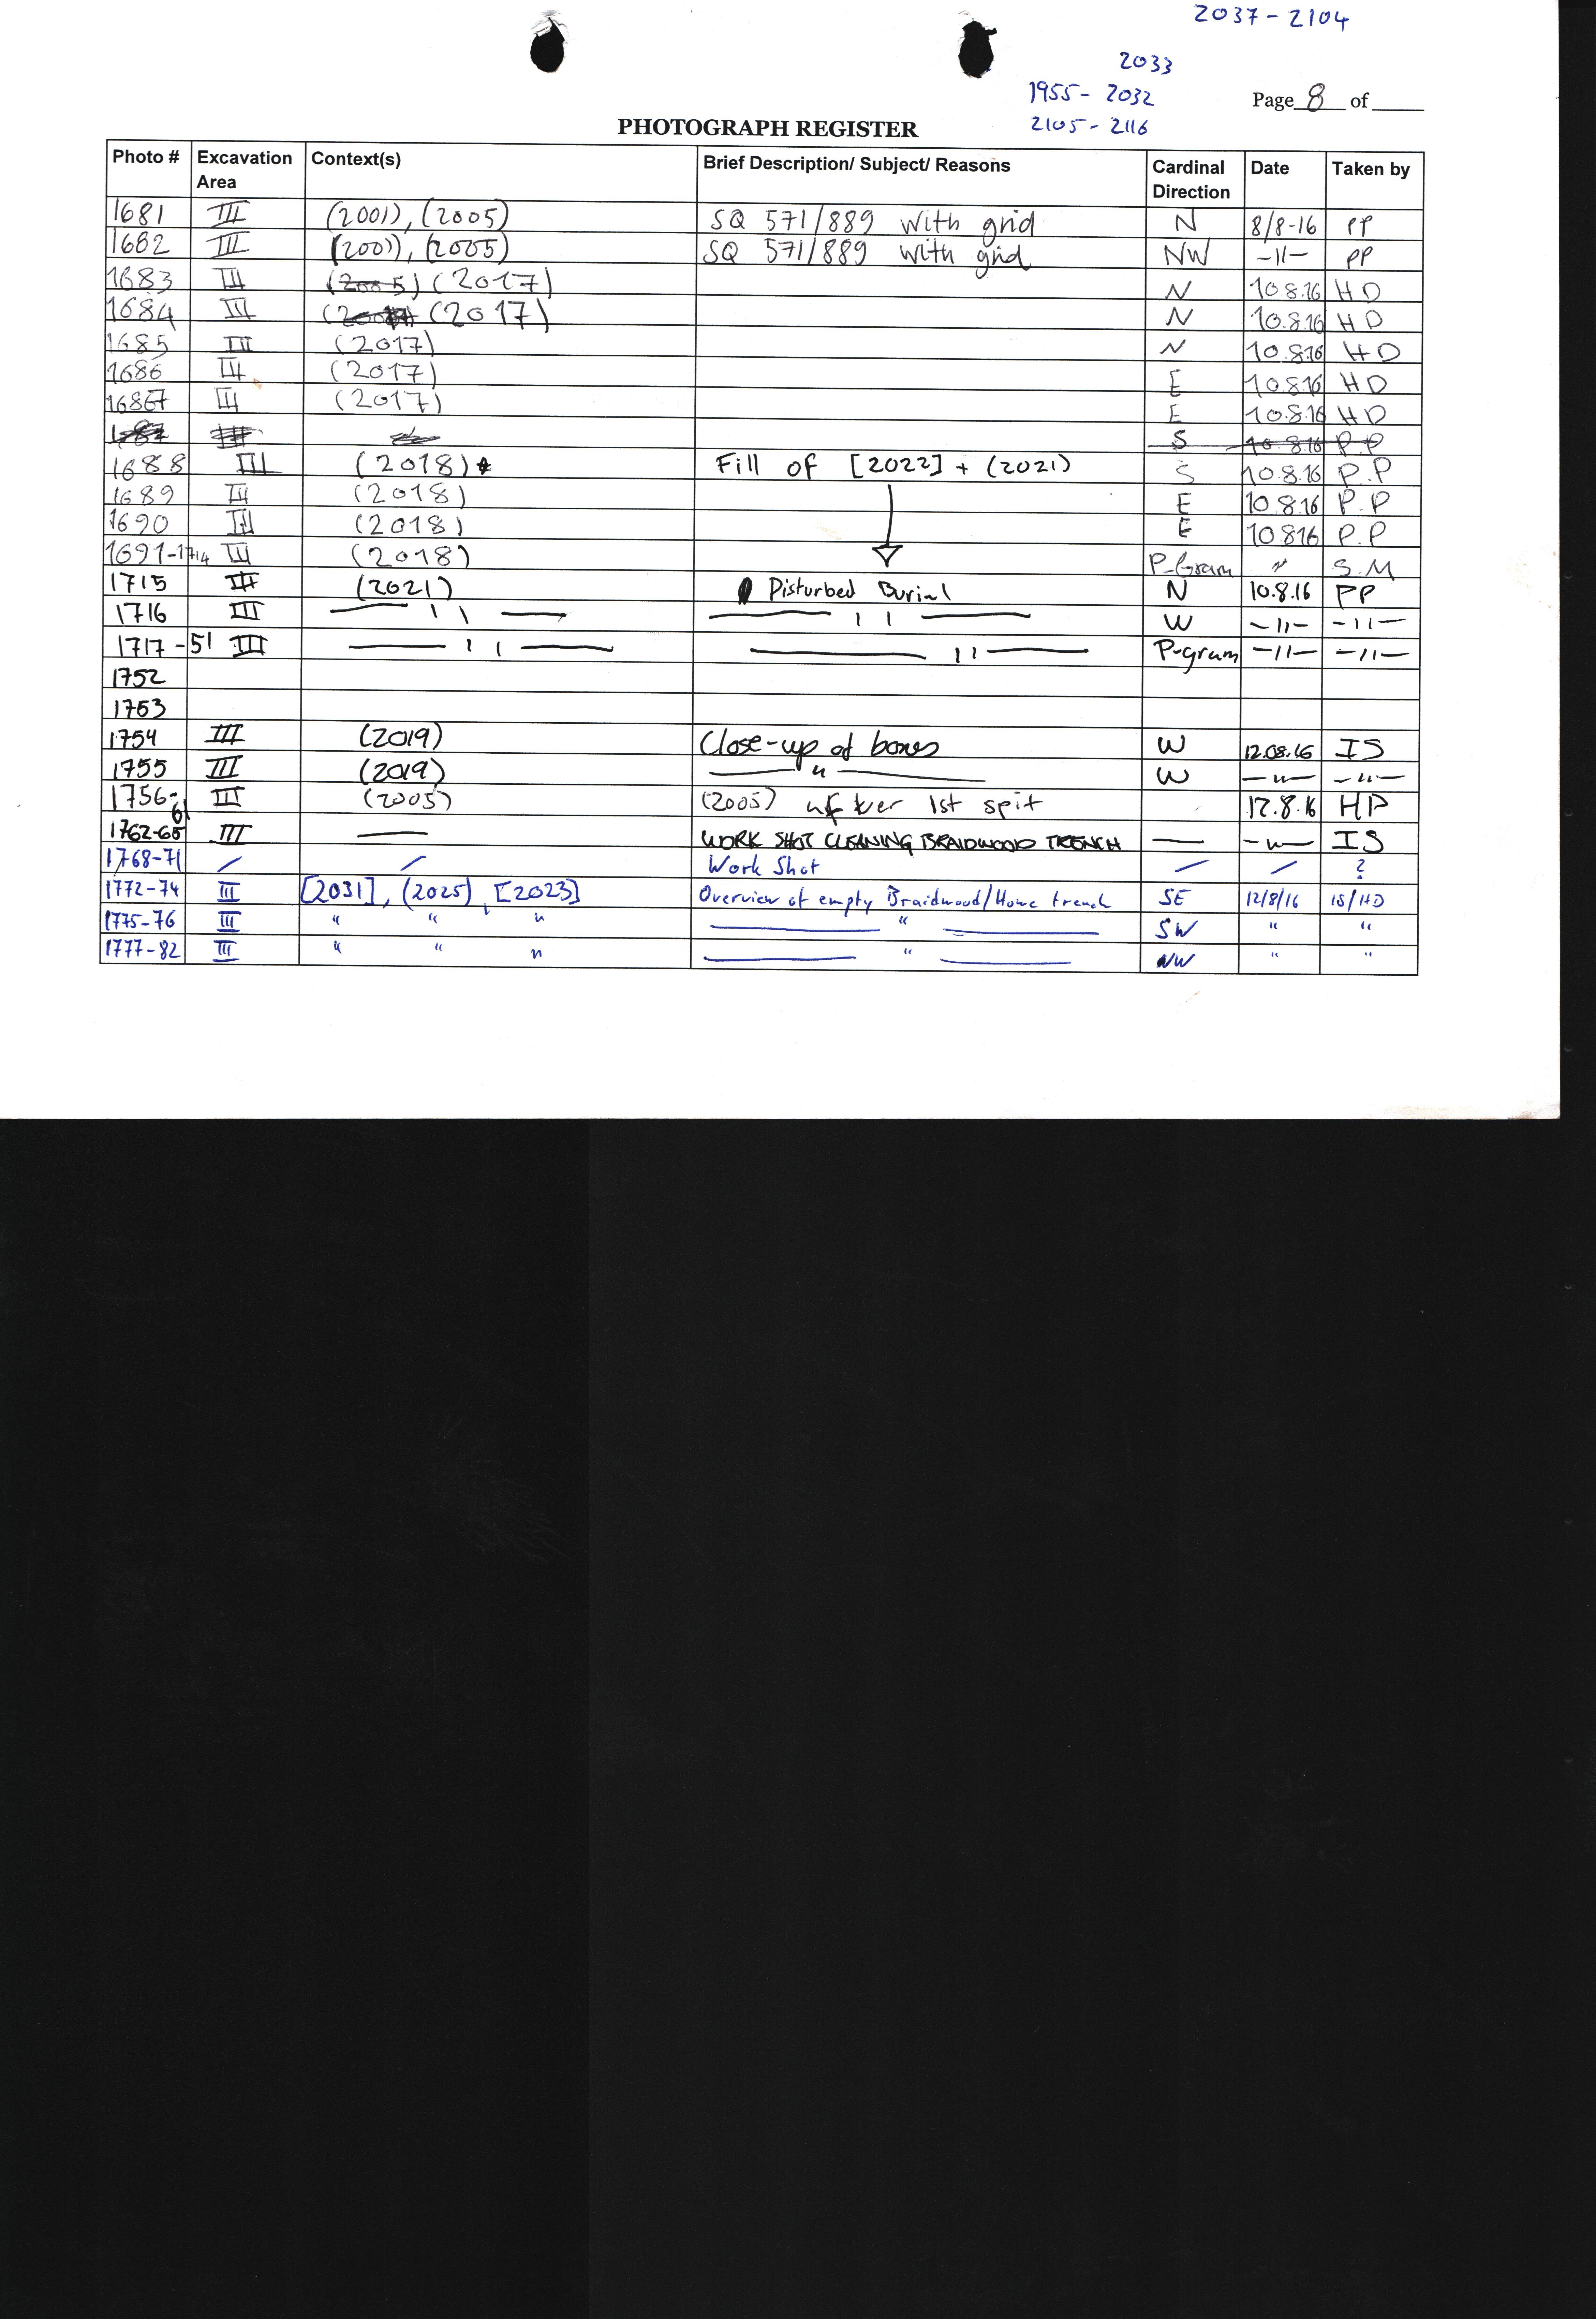 2037 - 2104
2033
1955 - 2032
2105 - 2116
Page 8 of
PHOTOGRAPH REGISTER
Photo # Excavation Area Context(s) Brief Description/ Subject/ Reasons Cardinal Direction Date Taken by
1681 III (2001), (2005) SQ 571/889 with grid N 8/8-16 PP
1682 III (2001), (2005) SQ 571/889 with grid NW -11- PP
1683 III (2005) (2017) N 10.8.16 HD
1684 III (2017) N 10.8.16 HD
1685 III (2017) N 10.8.16 HD
1686 III (2017) E 10.8.16 HD
1687 III (2017) E 10.8.16 HD
1687 III S 10.8.16 P.P
1688 III (2018)* Fill of [2022] + (2021) S 10.8.16 P.P
1689 III (2018) E 10.8.16 P.P
1690 III (2018) E 10.8.16 P.P
1691-1714 III (2018) P-Gram " S.M
1715 III (2021) Disturbed Burial N 10.8.16 PP
1716 III — 11 — — 11 — W -11- -11-
1717-51 III — 11 — — 11 — P-gram -11- -11-
1752
1753
1754 III (2019) Close-up of bones W 12.08.16 IS
1755 III (2019) — " — W — " — — " —
1756-61 III (2005) (2005) after 1st spit 12.8.16 HD
1762-65 III — WORK SHOT CLEANING BRAIDWOOD TRENCH — - " - IS
1768-71 / / Work Shot / / ?
1772-74 III [2031], (2025), [2023] Overview of empty Braidwood/Howe trench SE 12/8/16 IS/HD
1775-76 III " " " — " — SW " "
1777-82 III " " " — " — NW " "